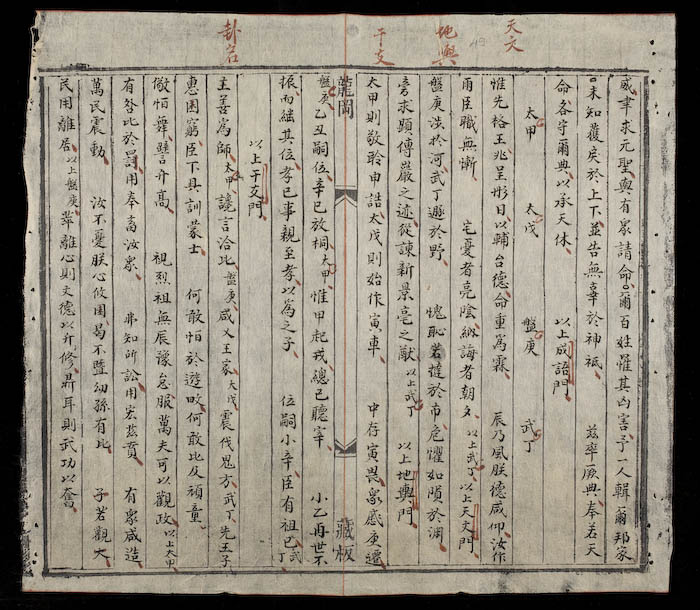 天文
地輿
干支
卦名
49
威聿求元聖與有衆請命。爾百姓罹其凶害予一人輯爾邦家
。未知獲戾於上下並告無辜於神祇 茲率厥典奉若天
命各守爾典以承天休 以上成語門
太甲 太戊 盤庚 武丁
惟先格王兆呈肜日以輔台德命重為霖 辰乃風朕德咸仰汝作
雨臣職無慚 宅憂者亮陰納誨者朝夕以上武丁以上天文門
盤庚涉於河武丁遯於野 愧恥若撻於市危懼如隕於淵
旁求顯傅巖之迹從諫新景亳之猷以上武丁 以上地輿門
太甲則敬聆申誥太戊則始作寅車 中存寅畏衆慼庚遷
龍岡 藏板
盤庚乙丑嗣位辛巳放桐太甲 惟甲起戎總已聽宰 小乙再世不
振而繼其位孝已事親至孝以為之子 位嗣小辛臣有祖已武丁
以上干支門
主善為師太甲 讒言洽比盤庚咸乂王家太戊震伐鬼方武丁 先王子
惠困窮臣下具訓蒙士 何敢恒於遊畋何敢比及頑童
儆恒舞譬升髙 視烈祖無辰豫怠服萬夫可以觀政以上太甲
有咎比於罰用奉畜汝衆 弗知所訟用宏茲賁 有衆咸造
萬民震動 汝不憂朕心攸困曷不曁幼孫有比 予若觀火
民用離居以上盤庚 離心則文德以升修鼎耳則武功以奮